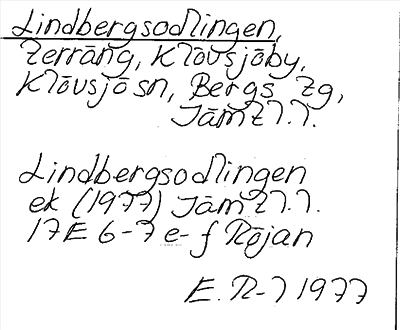 Lindbergsodlingen,
terräng, Klövsjöby,
Klövsjö sn, Bergs tg,
Jämtl.l.
Lindbergsodlingen
ek (1977) Jämtl.l.
17E 6-7 e-f Röjan
E. N-l 1977